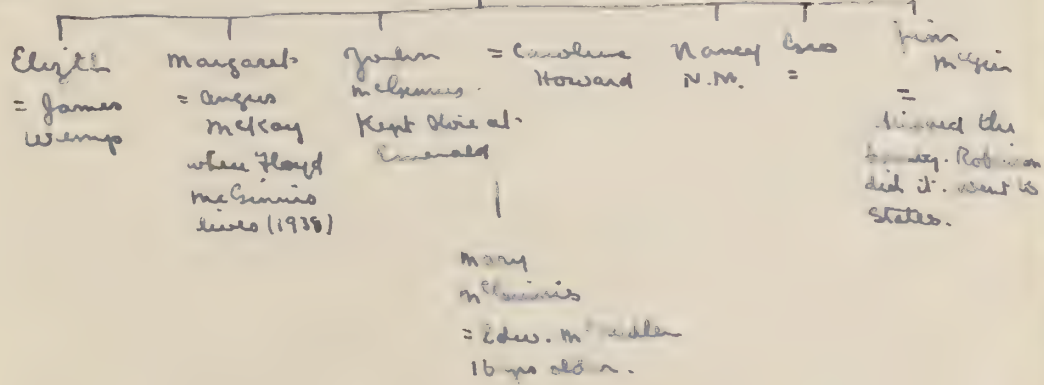 Elizth
= James
Wemp
Margaret
= Angus
McKay
where Floyd
McGinnis
lives (1938)
John
McGinnis.
Kept store at
Emerald
= Caroline
Howard
Nancy
N.M.
=
Jim
=
the
did it. went to
States.
Mary
McGinnis
= Edw.
16 yrs old